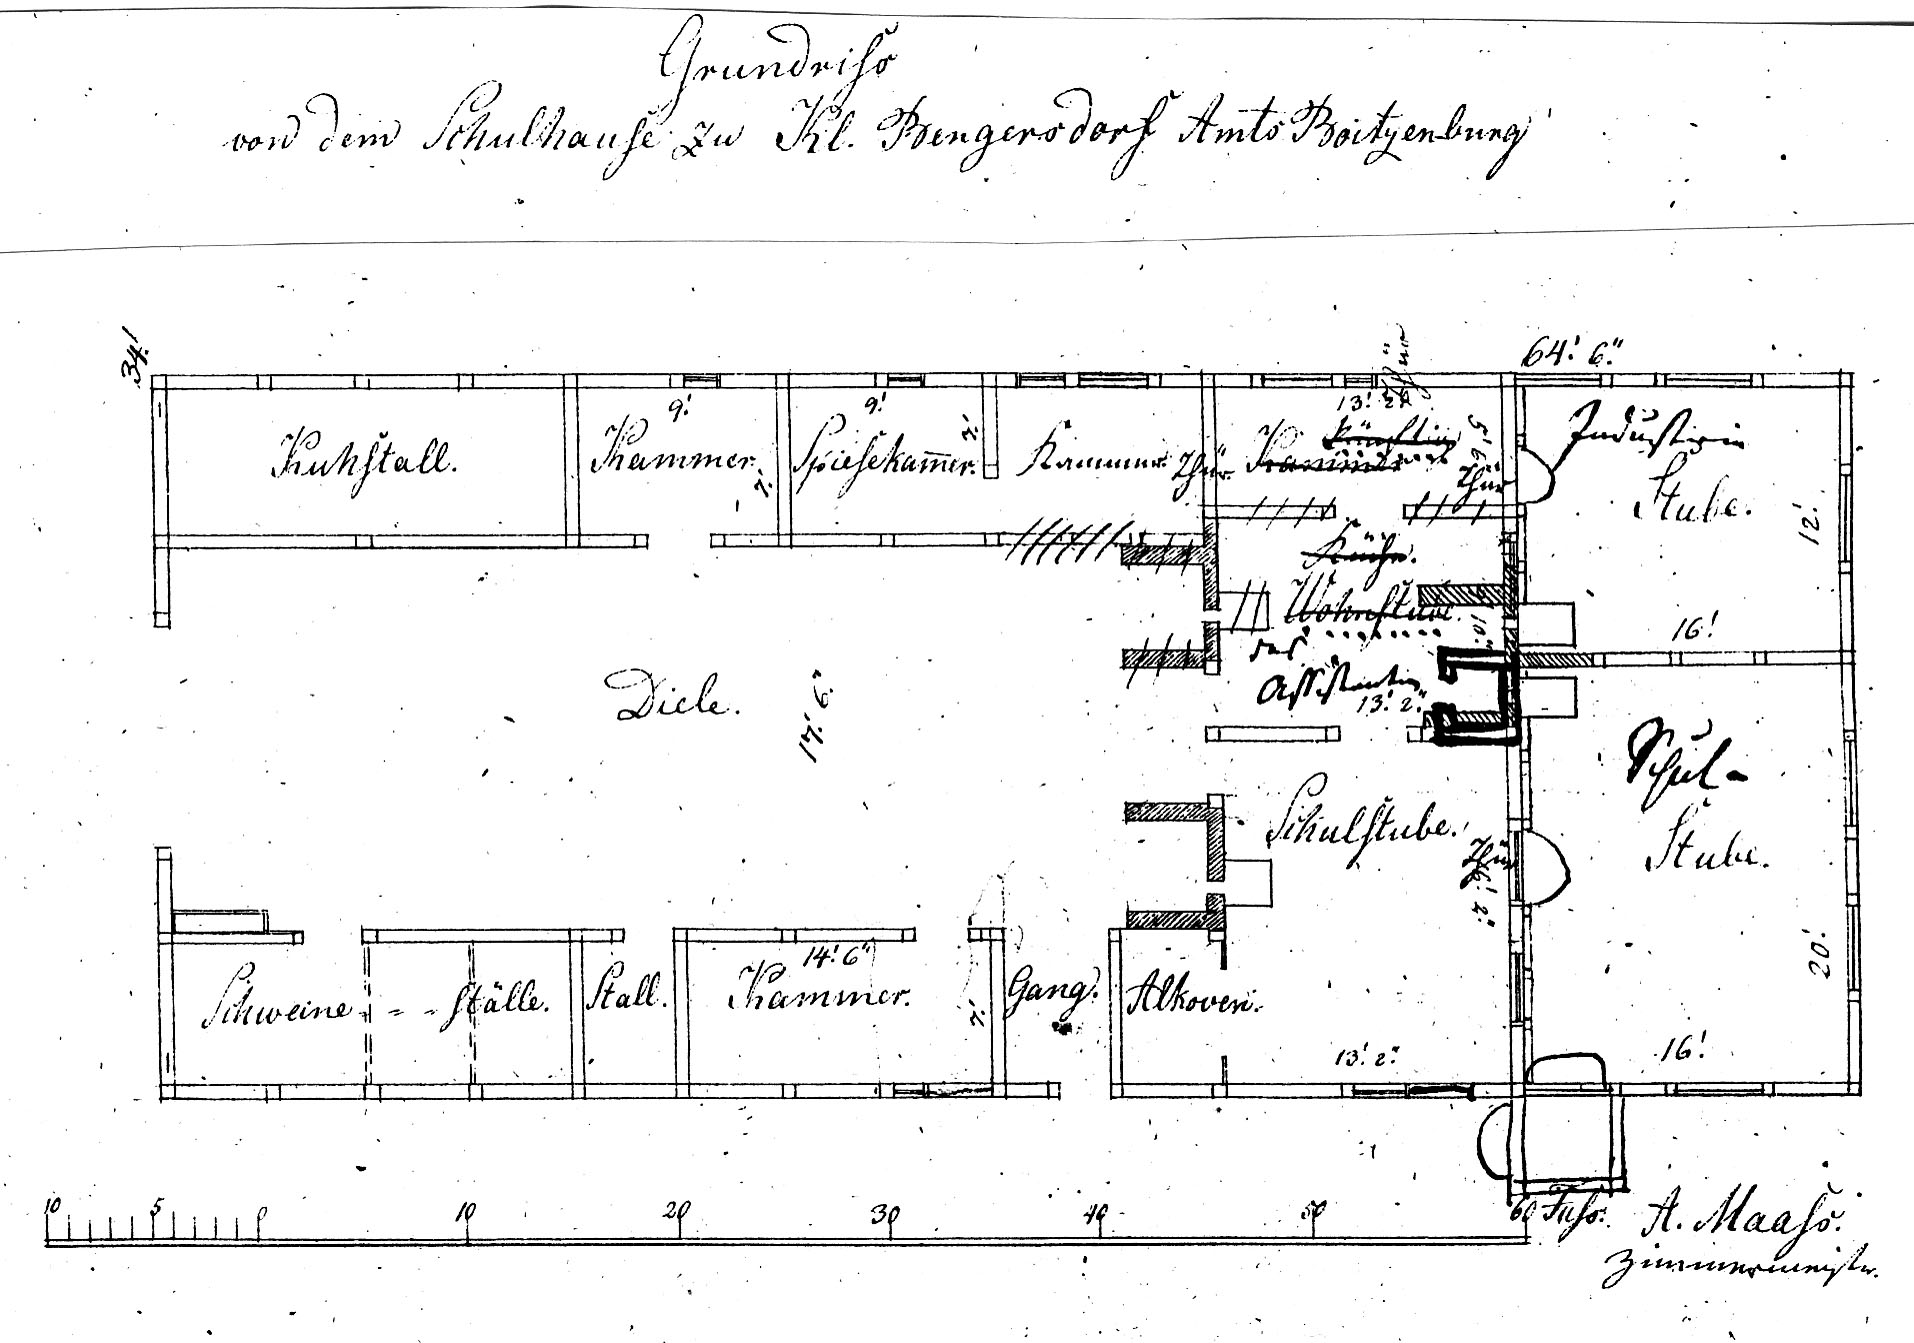 Grundriss
von dem Schulhause zu Kl. Bengersdorf Amts Boitzenburg
34'.
64'. 6".
Kuhstall.
9'.
Kammer.
7'.
9'.
Spiesekam̅er.
7'.
Kammer
Thür
13'. 2".
Thür
Kammer
5'. 6"
Thür
Industrie
Stube.
12'.
16'.
Küche.
Wohnstube.
10'.
des
Assistenten
13'. 2".
Diele.
17'. 6".
Schulstube.
Thür
16'. 2".
Schul-
Stube.
20'.
16'.
Schweine - - - ställe.
Stall.
14'. 6"
Kammer.
7'.
Gang.
Alkoven.
13'. 2".
10 5 0 10 20 30 40 50 60 Fuss.
A. Maass.
Zimmermeister.